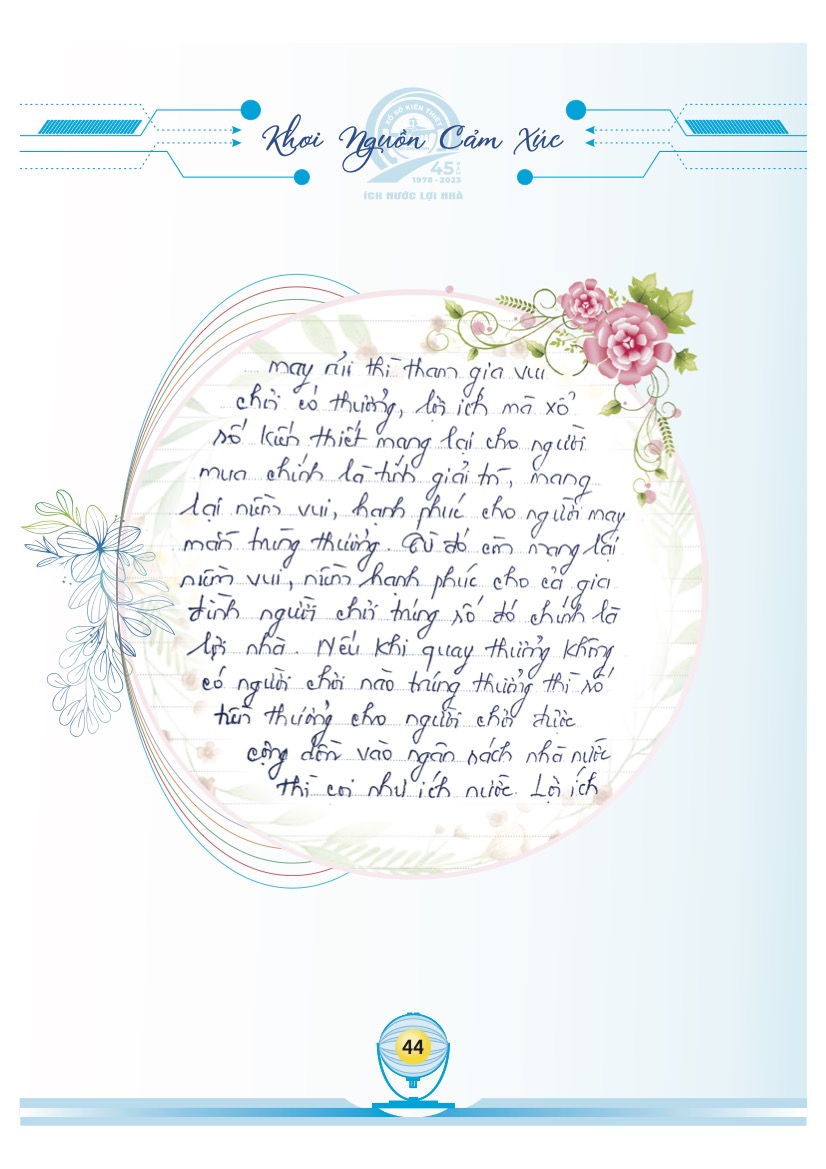 XỔ SỐ KIẾN THIẾT
Khơi Nguồn Cảm Xúc
45 NĂM
1978 - 2023
ÍCH NƯỚC LỢI NHÀ
may rủi thì tham gia vui
chơi có thưởng, lợi ích mà xổ
số kiến thiết mang lại cho người
mua chính là tính giải trí, mang
lại niềm vui, hạnh phúc cho người may
mắn trúng thưởng. Từ đó còn mang lại
niềm vui, niềm hạnh phúc cho cả gia
đình người chơi trúng số đó chính là
lợi nhà. Nếu khi quay thưởng không
có người chơi nào trúng thưởng thì số
tiền thưởng cho người chơi được
cộng dồn vào ngân sách nhà nước
thì coi như ích nước. Lợi ích
44